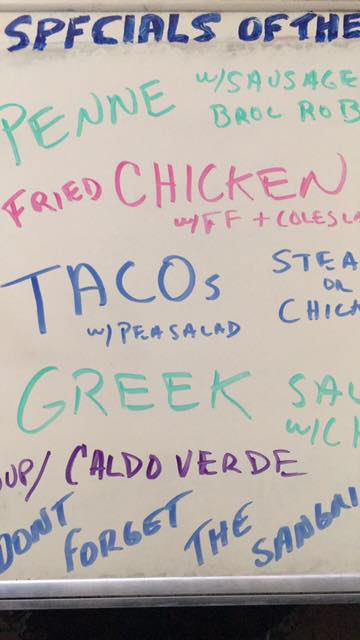 SPECIALS OF THE
PENNE W/SAUSAGE
BROC ROB
FRIED CHICKEN
W/FF + COLESL
TACOS STEA
OR
W/PEA SALAD CHICK
GREEK SAL
W/CH
OUP/CALDO VERDE
DONT FORGET THE SANGRI